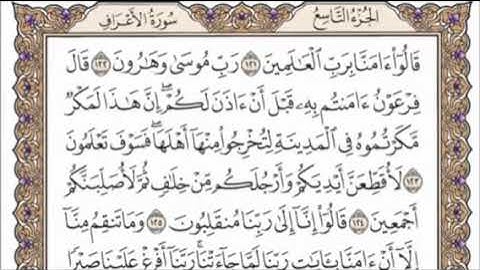 الجزء التاسع سورة الأعراف
قَالُوٓا۟ ءَامَنَّا بِرَبِّ ٱلْعَٰلَمِينَ ١٢١ رَبِّ مُوسَىٰ وَهَٰرُونَ ١٢٢ قَالَ
فِرْعَوْنُ ءَامَنتُم بِهِۦ قَبْلَ أَنْ ءَاذَنَ لَكُمْ ۖ إِنَّ هَٰذَا لَمَكْرٌ
مَّكَرْتُمُوهُ فِى ٱلْمَدِينَةِ لِتُخْرِجُوا۟ مِنْهَآ أَهْلَهَا ۖ فَسَوْفَ تَعْلَمُونَ
١٢٣ لَأُقَطِّعَنَّ أَيْدِيَكُمْ وَأَرْجُلَكُم مِّنْ خِلَٰفٍ ثُمَّ لَأُصَلِّبَنَّكُمْ
أَجْمَعِينَ ١٢٤ قَالُوٓا۟ إِنَّآ إِلَىٰ رَبِّنَا مُنقَلِبُونَ ١٢٥ وَمَا تَنقِمُ مِنَّآ
إِلَّآ أَنْ ءَامَنَّا بِـَٔايَٰتِ رَبِّنَا لَمَّا جَآءَتْنَا ۚ رَبَّنَآ أَفْرِغْ عَلَيْنَا صَبْرًا